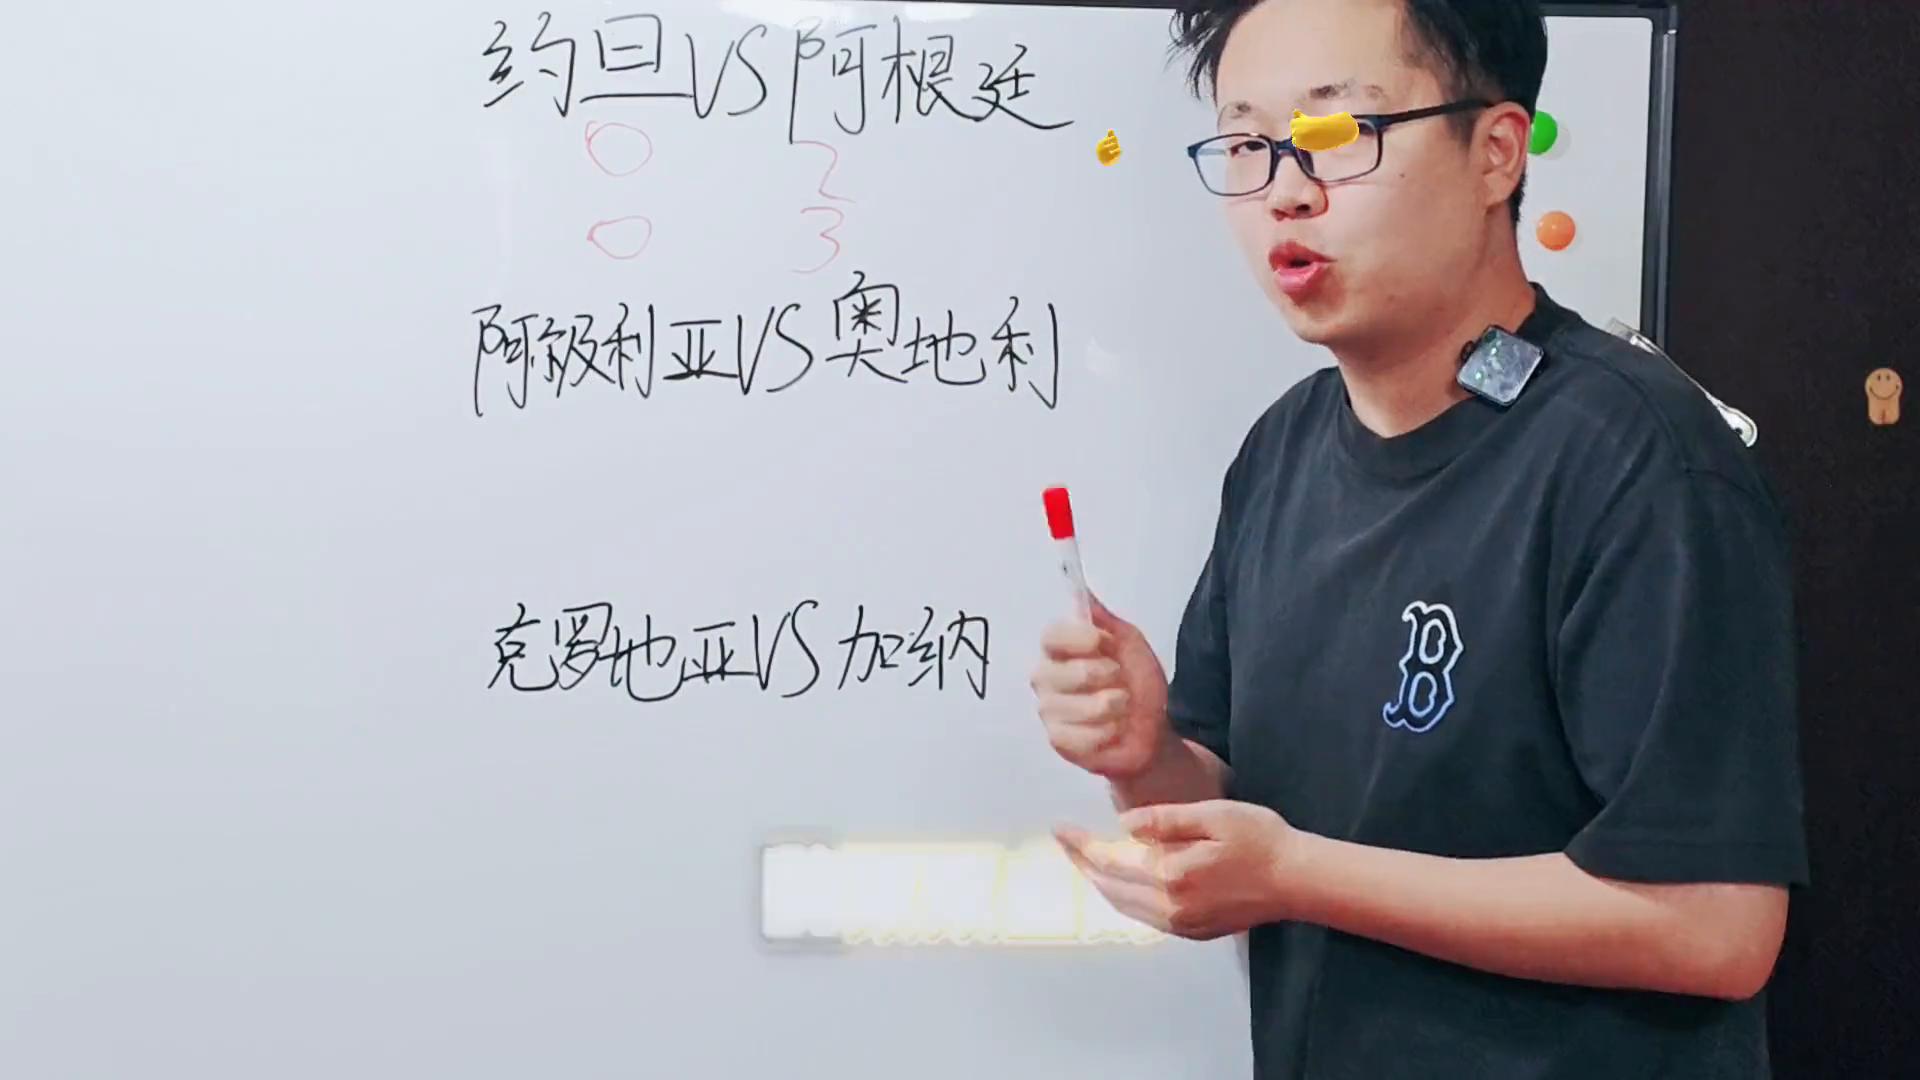 约旦VS阿根廷
0 2
0 3
阿级利亚VS奥地利
克罗地亚VS加纳
B